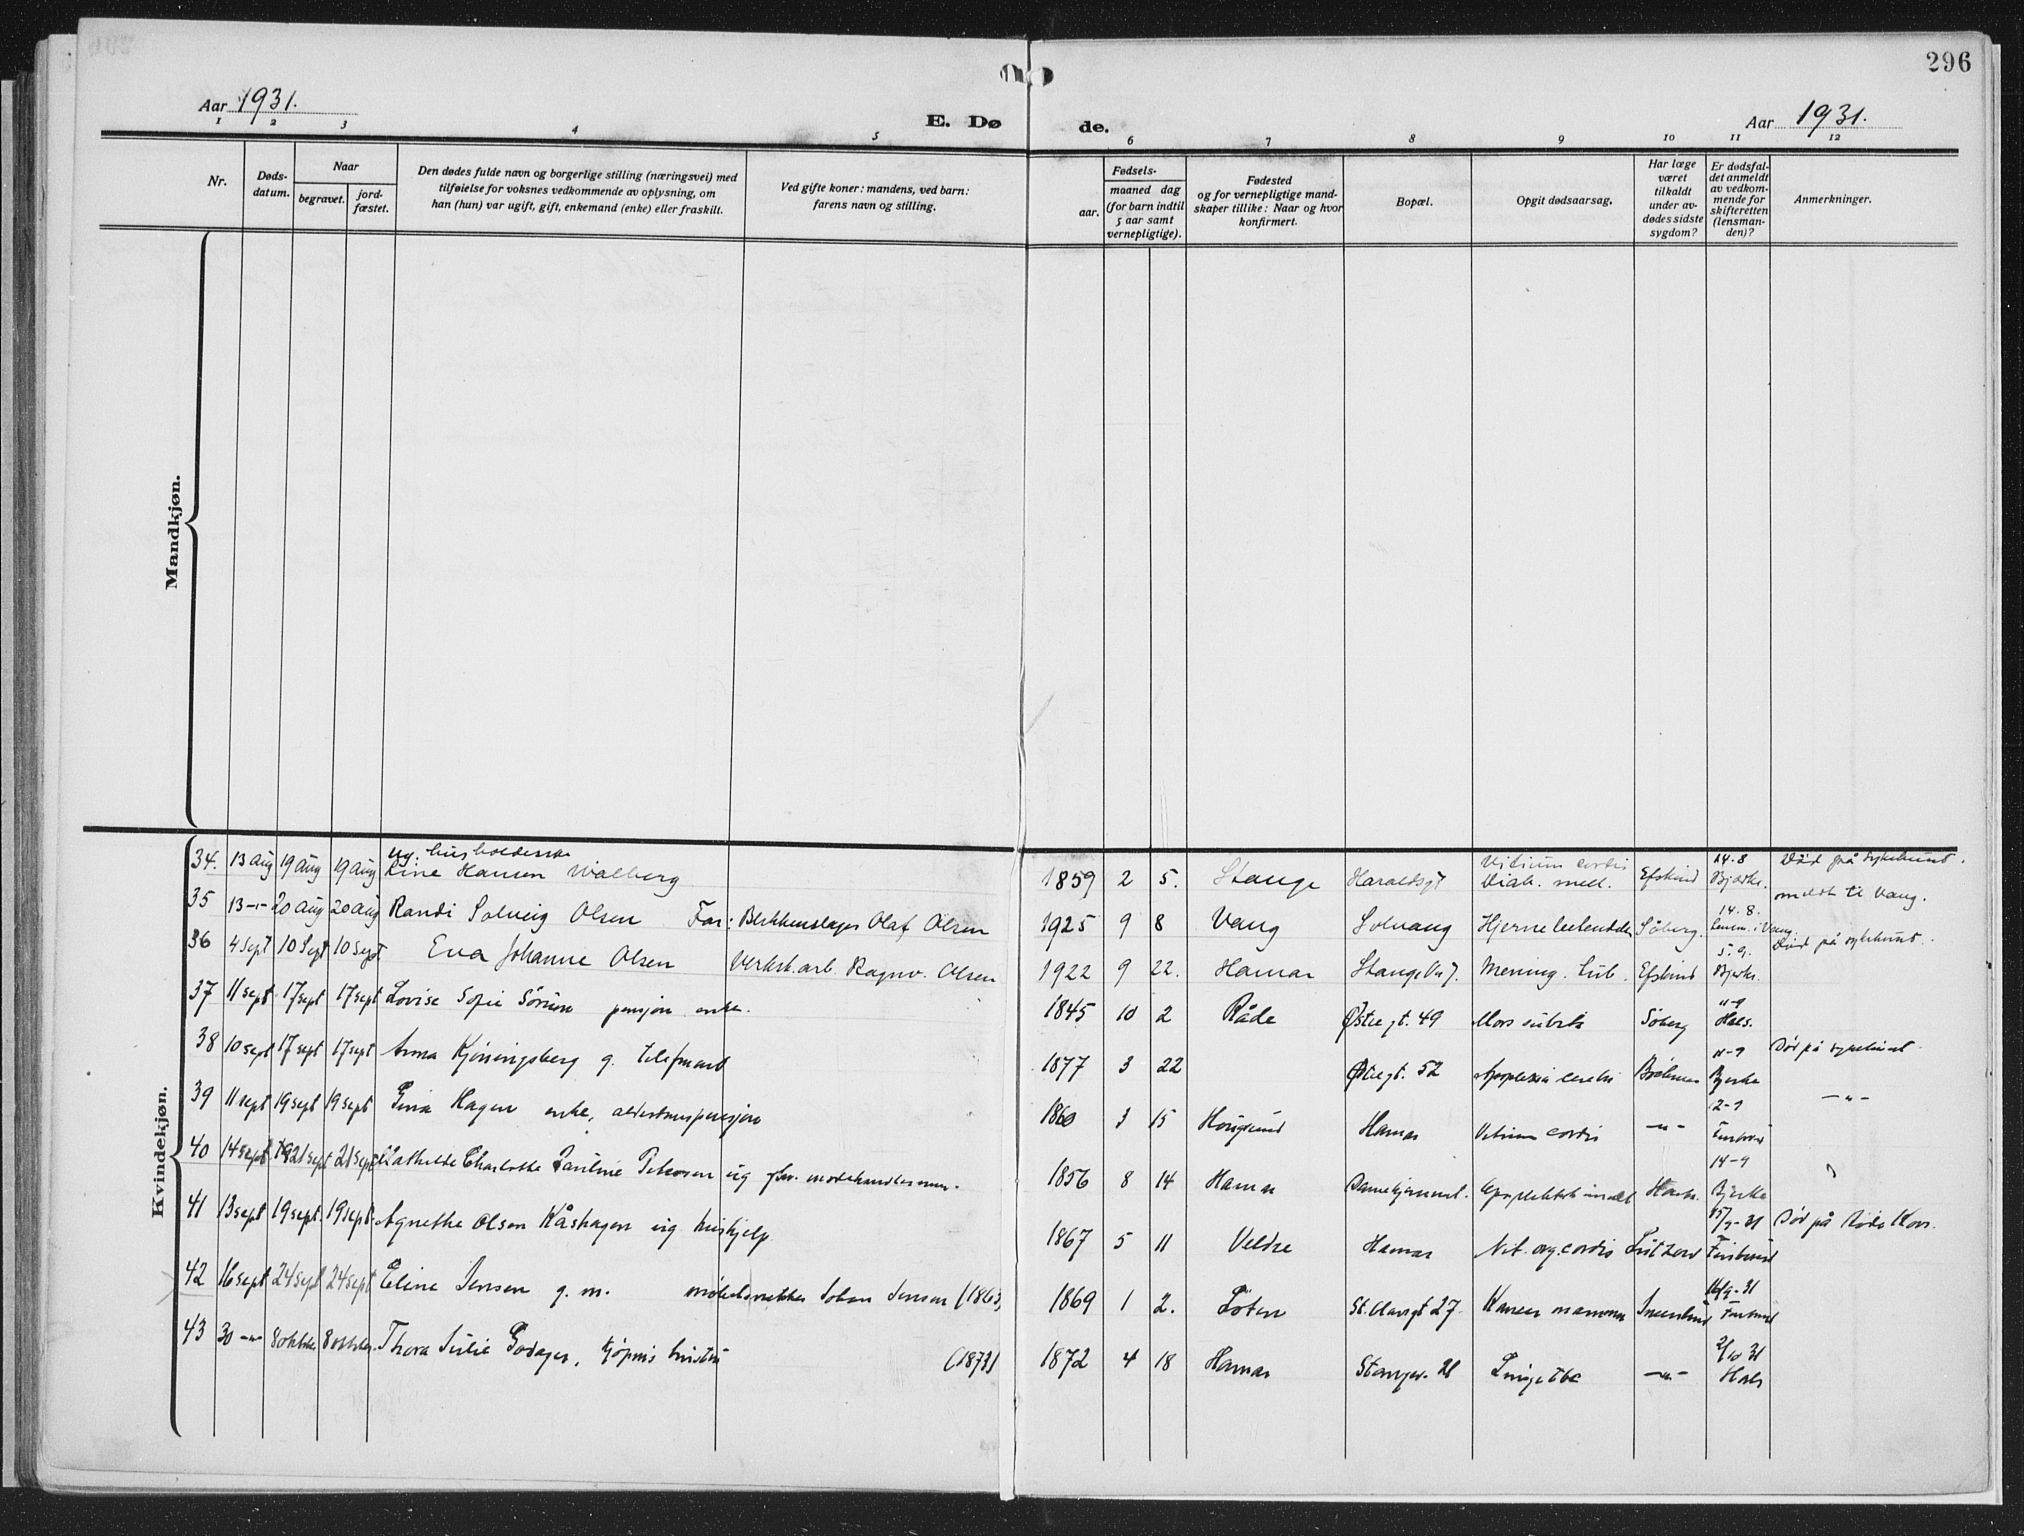 296
Aar 1931.
E. Døde.
Aar 1931.
1 2 3 4 5 6 7 8 9 10 11 12
Nr.
Døds-
datum.
Naar
begravet.
jord-
fæstet.
Den dødes fulde navn og borgerlige stilling (næringsvei) med
tilføielse for voksnes vedkommende av oplysning, om
han (hun) var ugift, gift, enkemand (enke) eller fraskilt.
Ved gifte koner: mandens, ved barn:
farens navn og stilling.
Fødsels-
aar.
maaned dag
(for barn indtil
5 aar samt
vernepligtige).
Fødested
og for vernepligtige mand-
skaper tillike: Naar og hvor
konfirmert.
Bopæl.
Opgit dødsaarsag.
Har læge
været
tilkaldt
under av-
dødes sidste
sygdom?
Er dødsfal-
det anmeldt
av vedkom-
mende for
skifteretten
(lensman-
den)?
Anmerkninger.
Mandkjøn.
Kvindekjøn.
ug. husholderske Vitium cordis 14.8 Død på sykehuset.
34. 13 aug 19 aug 19 aug Line Hansen Walberg 1859 2 5. Stange Haraldsgt Diab. mell. Efskind Bjerke. meldt til Vang.
14.8.
35 13 -"- 20 aug 20 aug Randi Solveig Olsen Far: Blikkenslager Olaf Olsen 1925 9 8 Vang Solvang Søberg. Lensm. i Vang.
5.9. Død på sykehuset.
36 4 sept 10 sept 10 sept Eva Johanne Olsen Verkst.arb. Ragnv. Olsen 1922 9 22. Hamar Stangev. 7. Mening. tub. Efskind Bjerke.
11-9
37 11 sept 17 sept 17 sept Lovise Sofie pensjon. enke. 1845 10 2 Råde Østregt. 49 Mors subita Søberg Hals.
11-9 Død på sykehuset
38 10 sept 17 sept 17 sept Anna Kjöningsberg g. 1877 3 22 Østregt. 52 Apoplexia cerebri Bjerke
12-9 -"-
39 11 sept 19 sept 19 sept Hagen enke, alderstrygdpensjon 1860 3 15 Hamar Vitium cordis -"-
14-9
40 14 sept 21 sept 21 sept Charlotte Pauline Petersen ug 1856 8 14 Hamar Bjerke
15/9-31 Død på Røde Kors.
41 13 sept 19 sept. 19 sept. Agnethe Olsen Kåshagen ug. hushjelp 1867 5 11 Veldre Hamar Vit. org. cordis
16/9-31
42 16 sept 24 sept 24 sept Eline Jensen g. m. møbelsnekker Johan Jensen (1863) 1869 1 2. Løten St. Olavsgt 27. Kancer mammae
2/10 31
43 30 -"- 8 oktober 8 oktober. Thora Julie (1873) 1872 4 18 Hamar Stangev. 21 Lungetbc -"- Hals